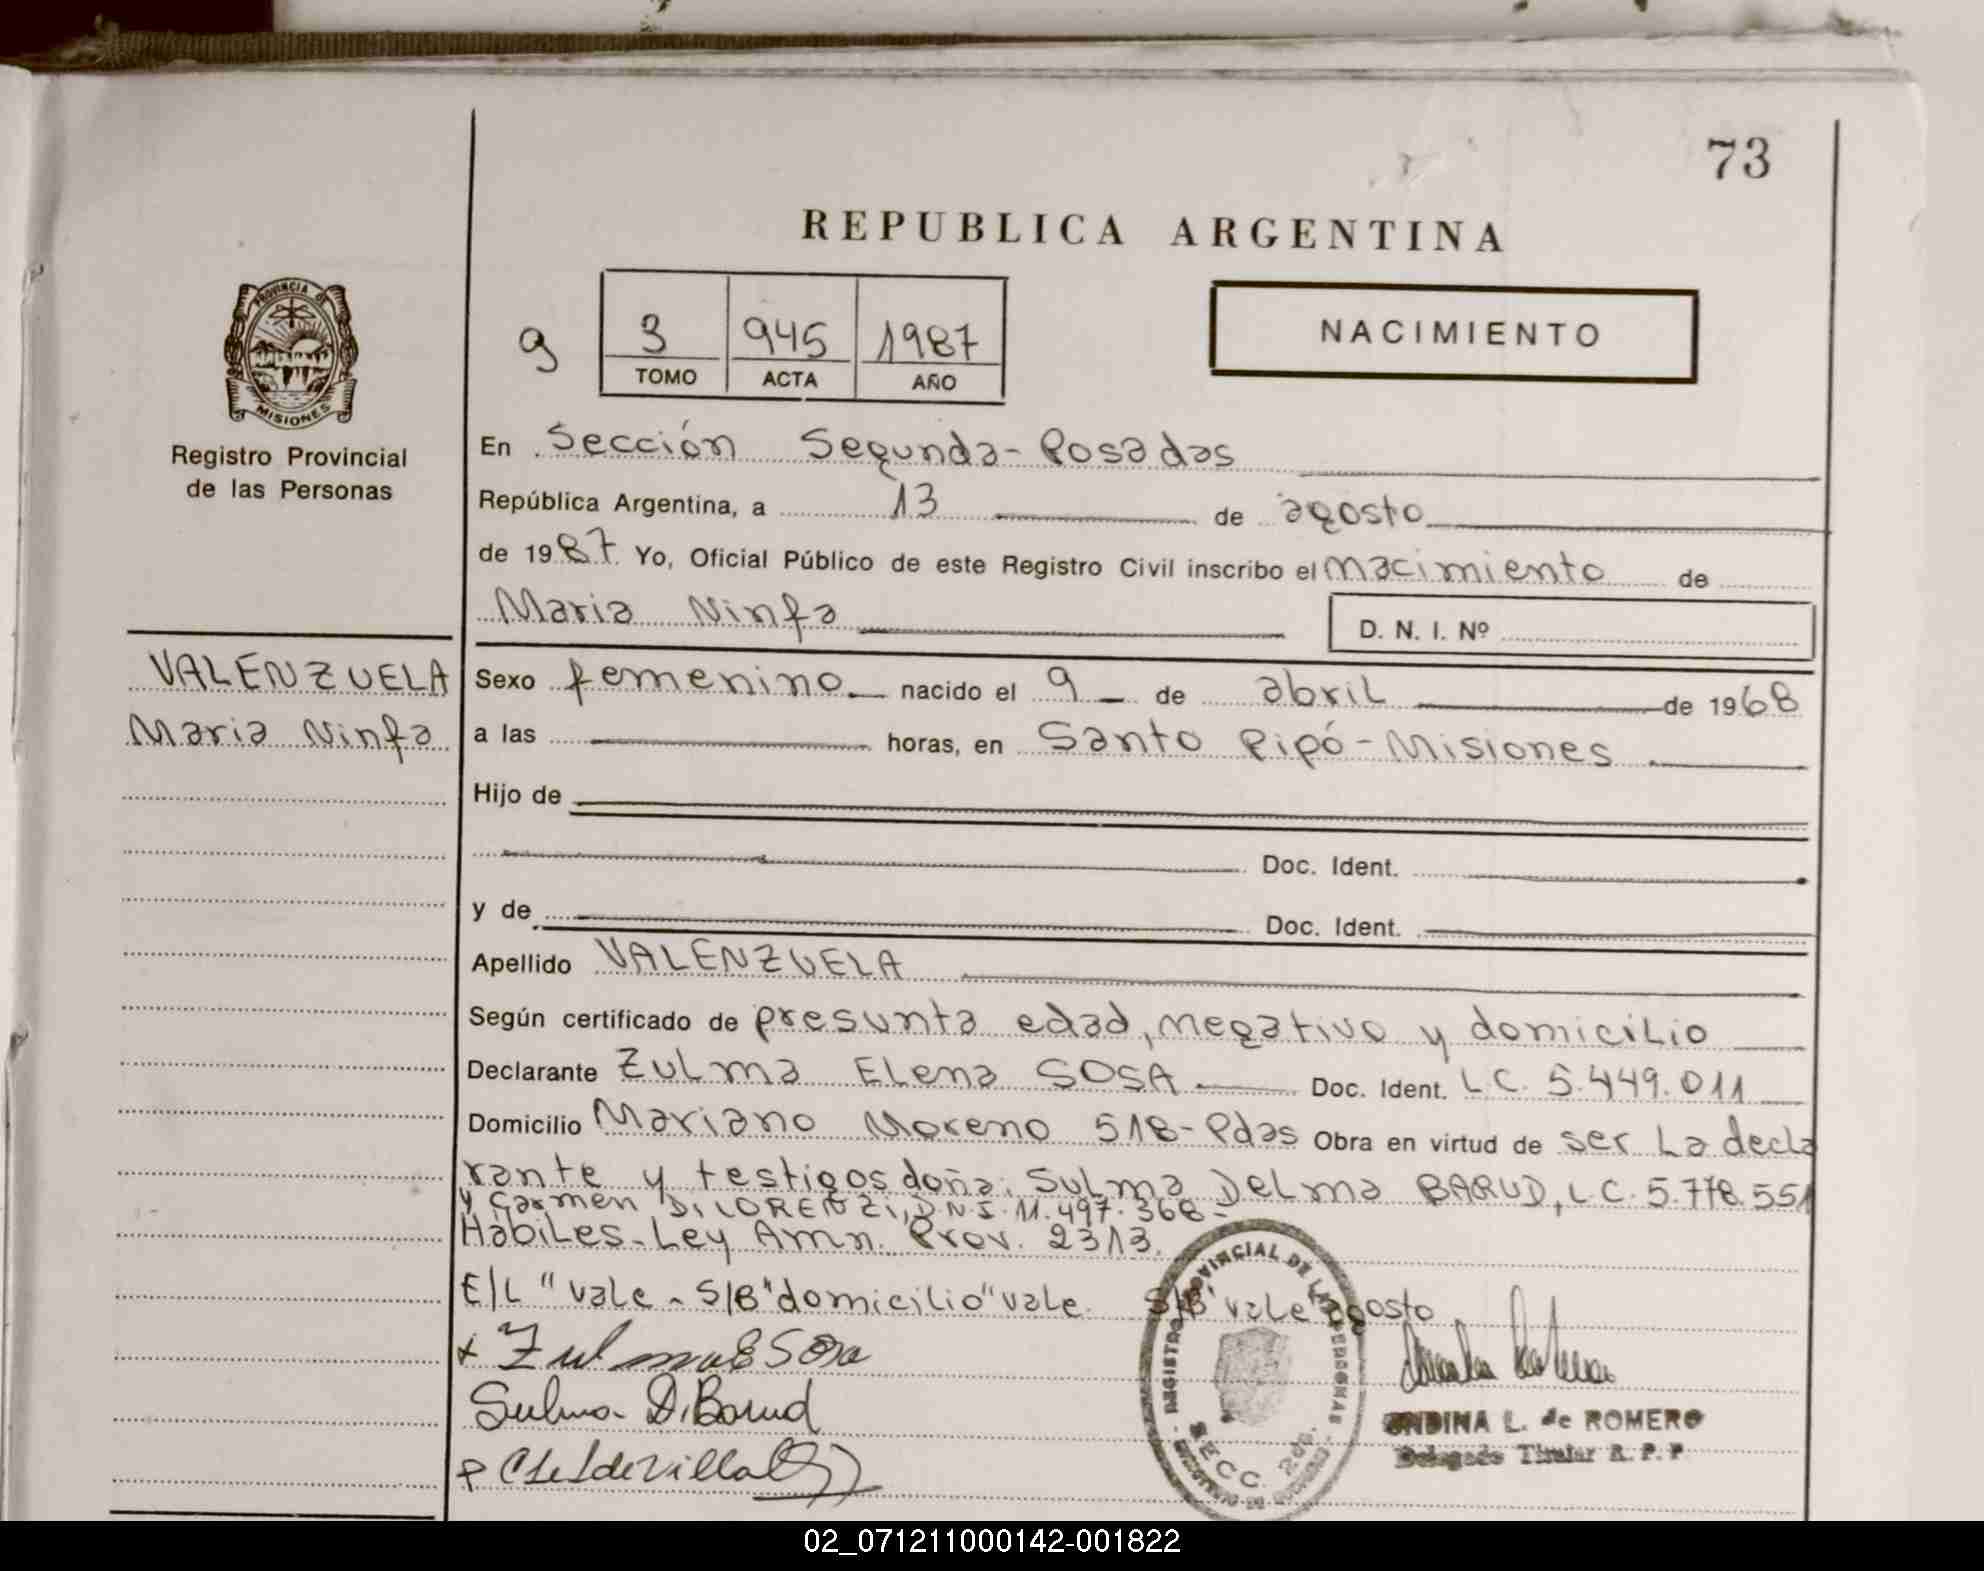 73
REPUBLICA ARGENTINA
PROVINCIA DE
MISIONES
Registro Provincial
de las Personas
9
3 945 1987
TOMO ACTA AÑO
NACIMIENTO
En Sección Segunda-Posadas
República Argentina, a 13 de agosto
de 1987 Yo, Oficial Público de este Registro Civil inscribo el nacimiento de
Maria Ninfa
D. N. I. Nº
VALENZUELA
Maria Ninfa
Sexo femenino nacido el 9 de abril de 1968
a las horas, en Santo Pipó-Misiones
Hijo de
Doc. Ident.
y de Doc. Ident.
Apellido VALENZUELA
Según certificado de presunta edad, negativo y domicilio
Declarante Zulma Elena SOSA Doc. Ident. LC. 5.449.011
Domicilio Mariano Moreno 518-Pdas Obra en virtud de ser la decla
rante y testigos doña: Sulma Delma BARUD, L.C. 5.778.551
y Carmen DI LORENZI, D.N.I. 11.497.368-
Habiles-Ley Amn. Prov. 2313.
E/L "vale - S/B "domicilio" vale. S/B' vale agosto
Zulma E Sosa
Sulma D. Barud
REGISTRO PROVINCIAL DE LAS PERSONAS
SECC. 2da.
ONDINA L. de ROMERO
Delegado Titular R. P. P.
02_071211000142-001822